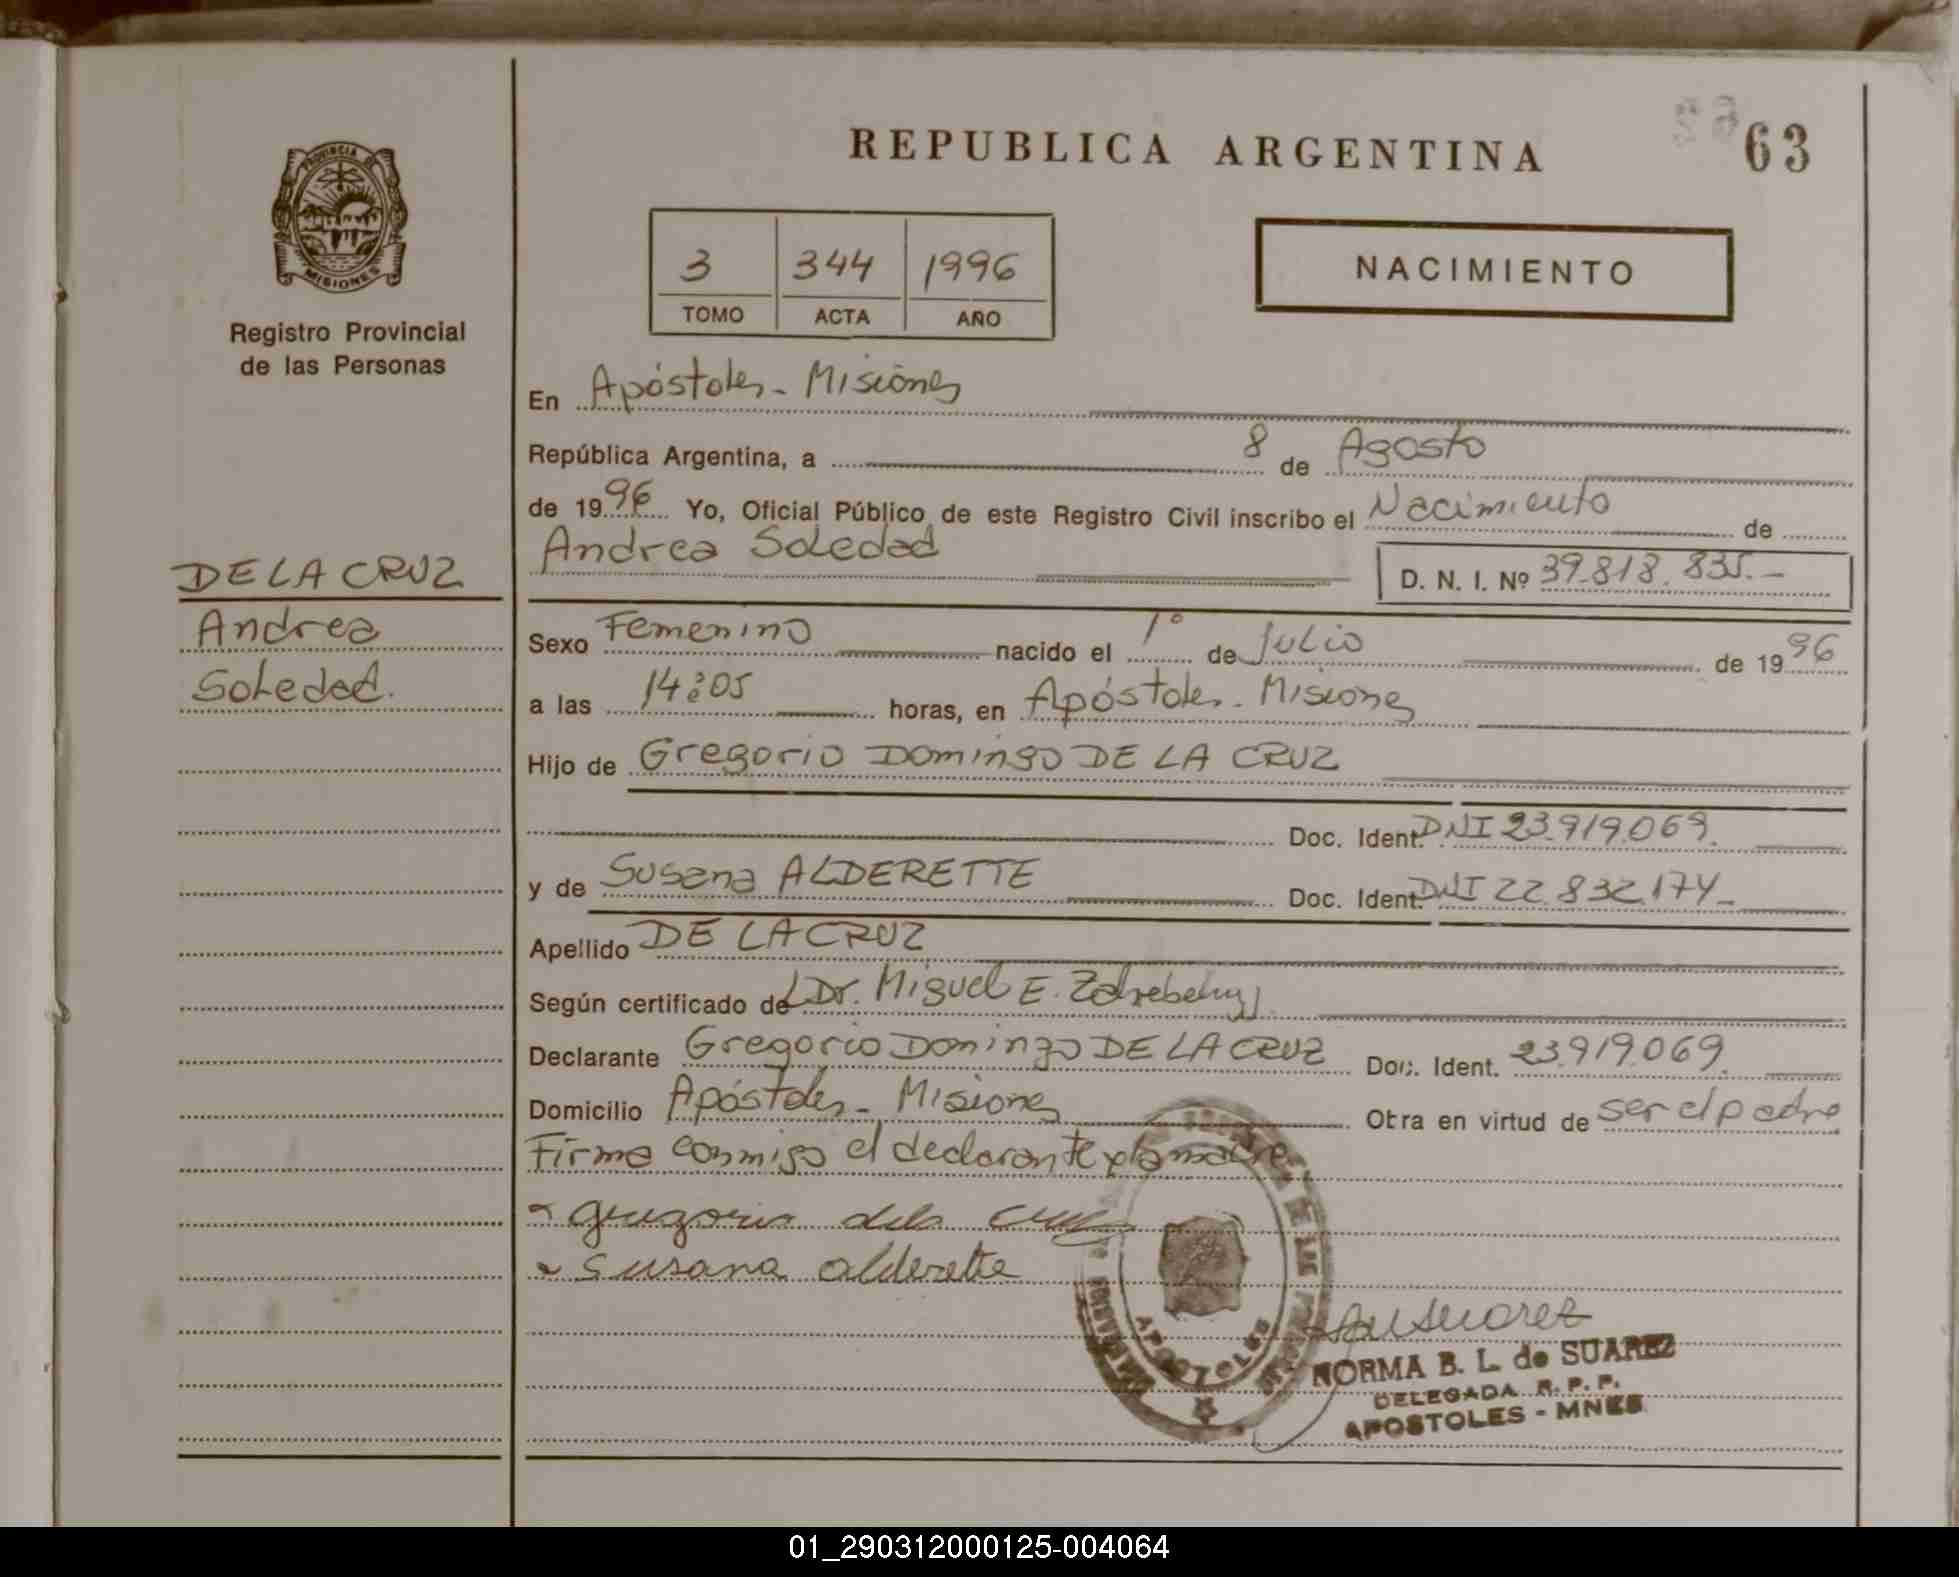 REPUBLICA ARGENTINA
63
PROVINCIA DE
MISIONES
Registro Provincial
de las Personas
3 344 1996
TOMO ACTA AÑO
NACIMIENTO
En Apóstoles - Misiones
República Argentina, a 8 de Agosto
de 1996 Yo, Oficial Público de este Registro Civil inscribo el Nacimiento de
Andrea Soledad D. N. I. Nº 39.818.835.-
DE LA CRUZ
Andrea
Soledad.
Sexo Femenino nacido el 1º de Julio de 1996
a las 14:05 horas, en Apóstoles - Misiones
Hijo de Gregorio Domingo DE LA CRUZ
Doc. Ident. DNI 23.919.069.
y de Susana ALDERETTE Doc. Ident. DNI 22.832.174-
Apellido DE LA CRUZ
Según certificado de Dr. Miguel E.
Declarante Gregorio Domingo DE LA CRUZ Doc. Ident. 23.919.069.
Domicilio Apóstoles - Misiones Otra en virtud de ser el padre
Firma conmigo el declarante y la madre
gregorio dela Cruz
Susana alderette
APOSTOLES
NORMA B. L. de SUAREZ
DELEGADA R. P. P.
APOSTOLES - MNES
01_290312000125-004064